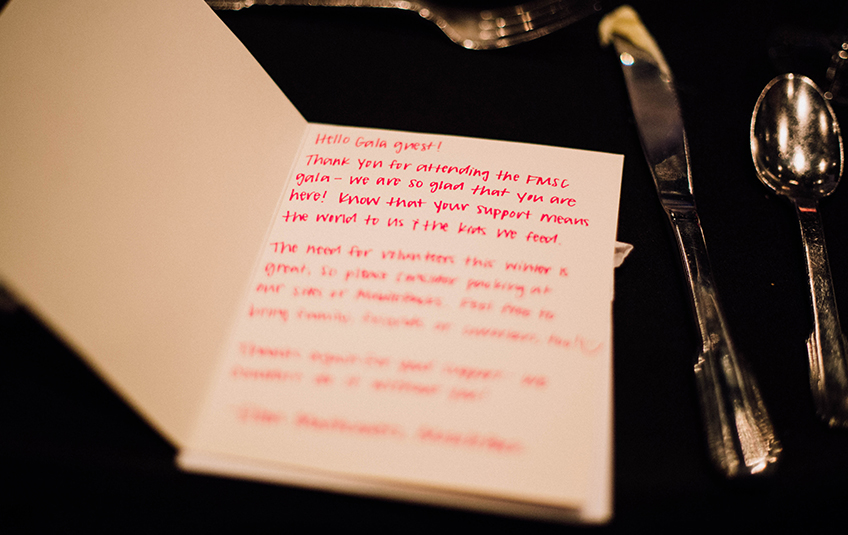 Hello Gala guest!
Thank you for attending the FMSC
gala - we are so glad that you are
here! Know that your support means
the world to us & the kids we feed.
The need for volunteers this winter is
great, so please consider packing at
our sites or MobilePacks. Feel free to
bring family, friends or coworkers, too!
Thanks again for your support - we
couldn't do it without you!